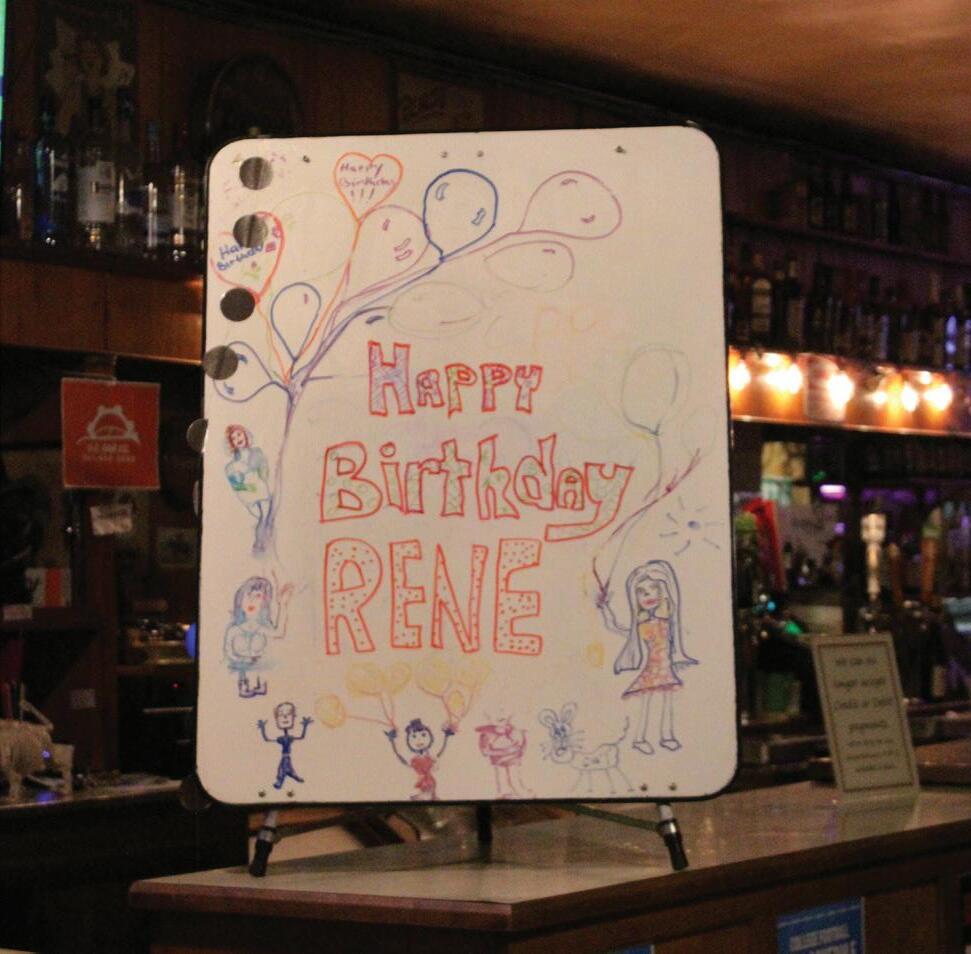 Happy
Birthday
!!!
Happy
Birthday
RENE
We can no
longer accept
Credit or Debit
payments
COLLEGE FOOTBALL